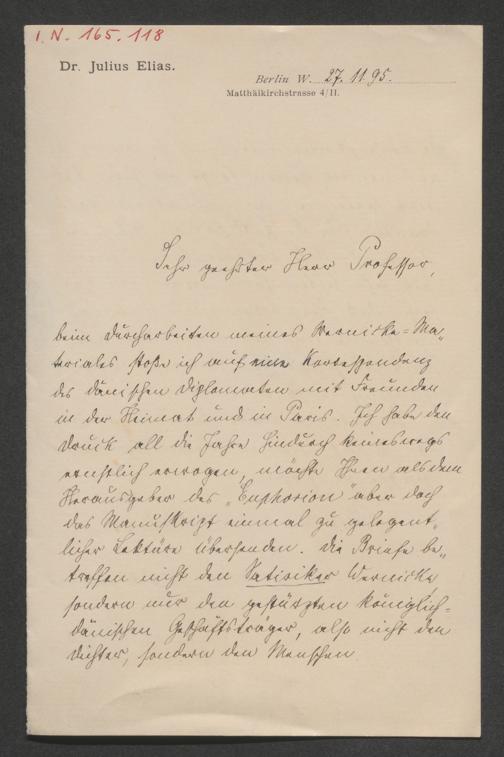 I. N. 165.118
Dr. Julius Elias.
Berlin W. 27.11.95.
Matthäikirchstrasse 4/II.
Sehr geehrter Herr Professor,
beim Durcharbeiten meines Wernicke-Ma„
teriales stoße ich auf eine Korrespondenz
des dänischen Diplomaten mit Freunden
in der Heimat und in Paris. Ich habe den
Druck all die Jahre hindurch keineswegs
ernstlich erwogen, möchte Ihnen als dem
Herausgeber des „Euphorion" aber doch
das Manuskript einmal zu gelegent„
licher Lektüre übersenden. Die Briefe be„
treffen nicht den Satiriker Wernicke
sondern nur den gestürzten königlich-
dänischen Geschäftsträger, also nicht den
Dichter, sondern den Menschen